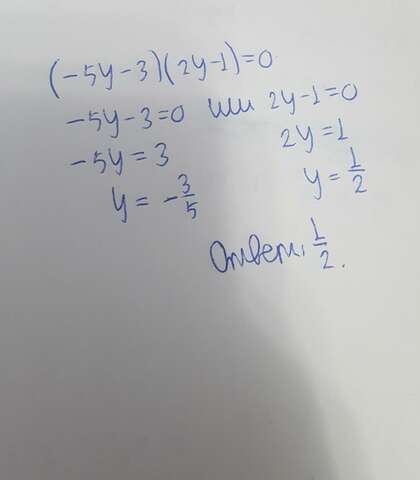 (-5y-3)(2y-1)=0
-5y-3=0 или 2y-1=0
-5y=3 2y=1
y=-3/5 y=1/2
Ответ: 1/2.